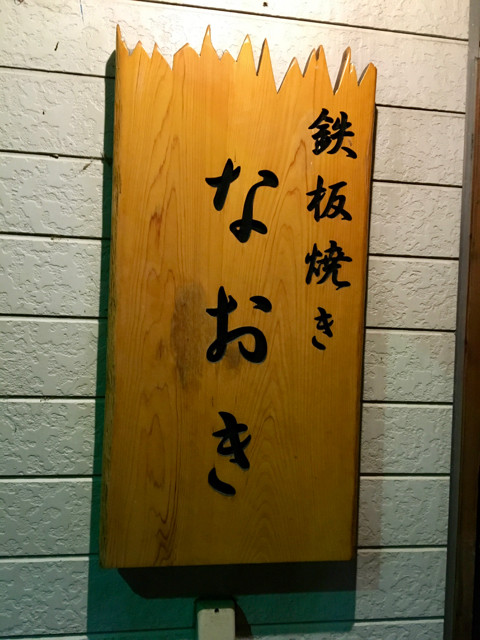 鉄板焼き
なおき